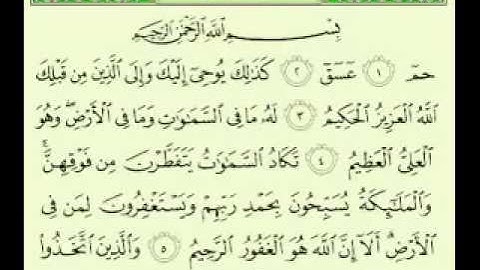 بِسْمِ اللَّهِ الرَّحْمَٰنِ الرَّحِيمِ
حمٓ ۝١ عٓسٓقٓ ۝٢ كَذَٰلِكَ يُوحِىٓ إِلَيْكَ وَإِلَى ٱلَّذِينَ مِن قَبْلِكَ
ٱللَّهُ ٱلْعَزِيزُ ٱلْحَكِيمُ ۝٣ لَهُۥ مَا فِى ٱلسَّمَٰوَٰتِ وَمَا فِى ٱلْأَرْضِ ۖ وَهُوَ
ٱلْعَلِىُّ ٱلْعَظِيمُ ۝٤ تَكَادُ ٱلسَّمَٰوَٰتُ يَتَفَطَّرْنَ مِن فَوْقِهِنَّ ۚ
وَٱلْمَلَٰٓئِكَةُ يُسَبِّحُونَ بِحَمْدِ رَبِّهِمْ وَيَسْتَغْفِرُونَ لِمَن فِى
ٱلْأَرْضِ ۗ أَلَآ إِنَّ ٱللَّهَ هُوَ ٱلْغَفُورُ ٱلرَّحِيمُ ۝٥ وَٱلَّذِينَ ٱتَّخَذُوا۟